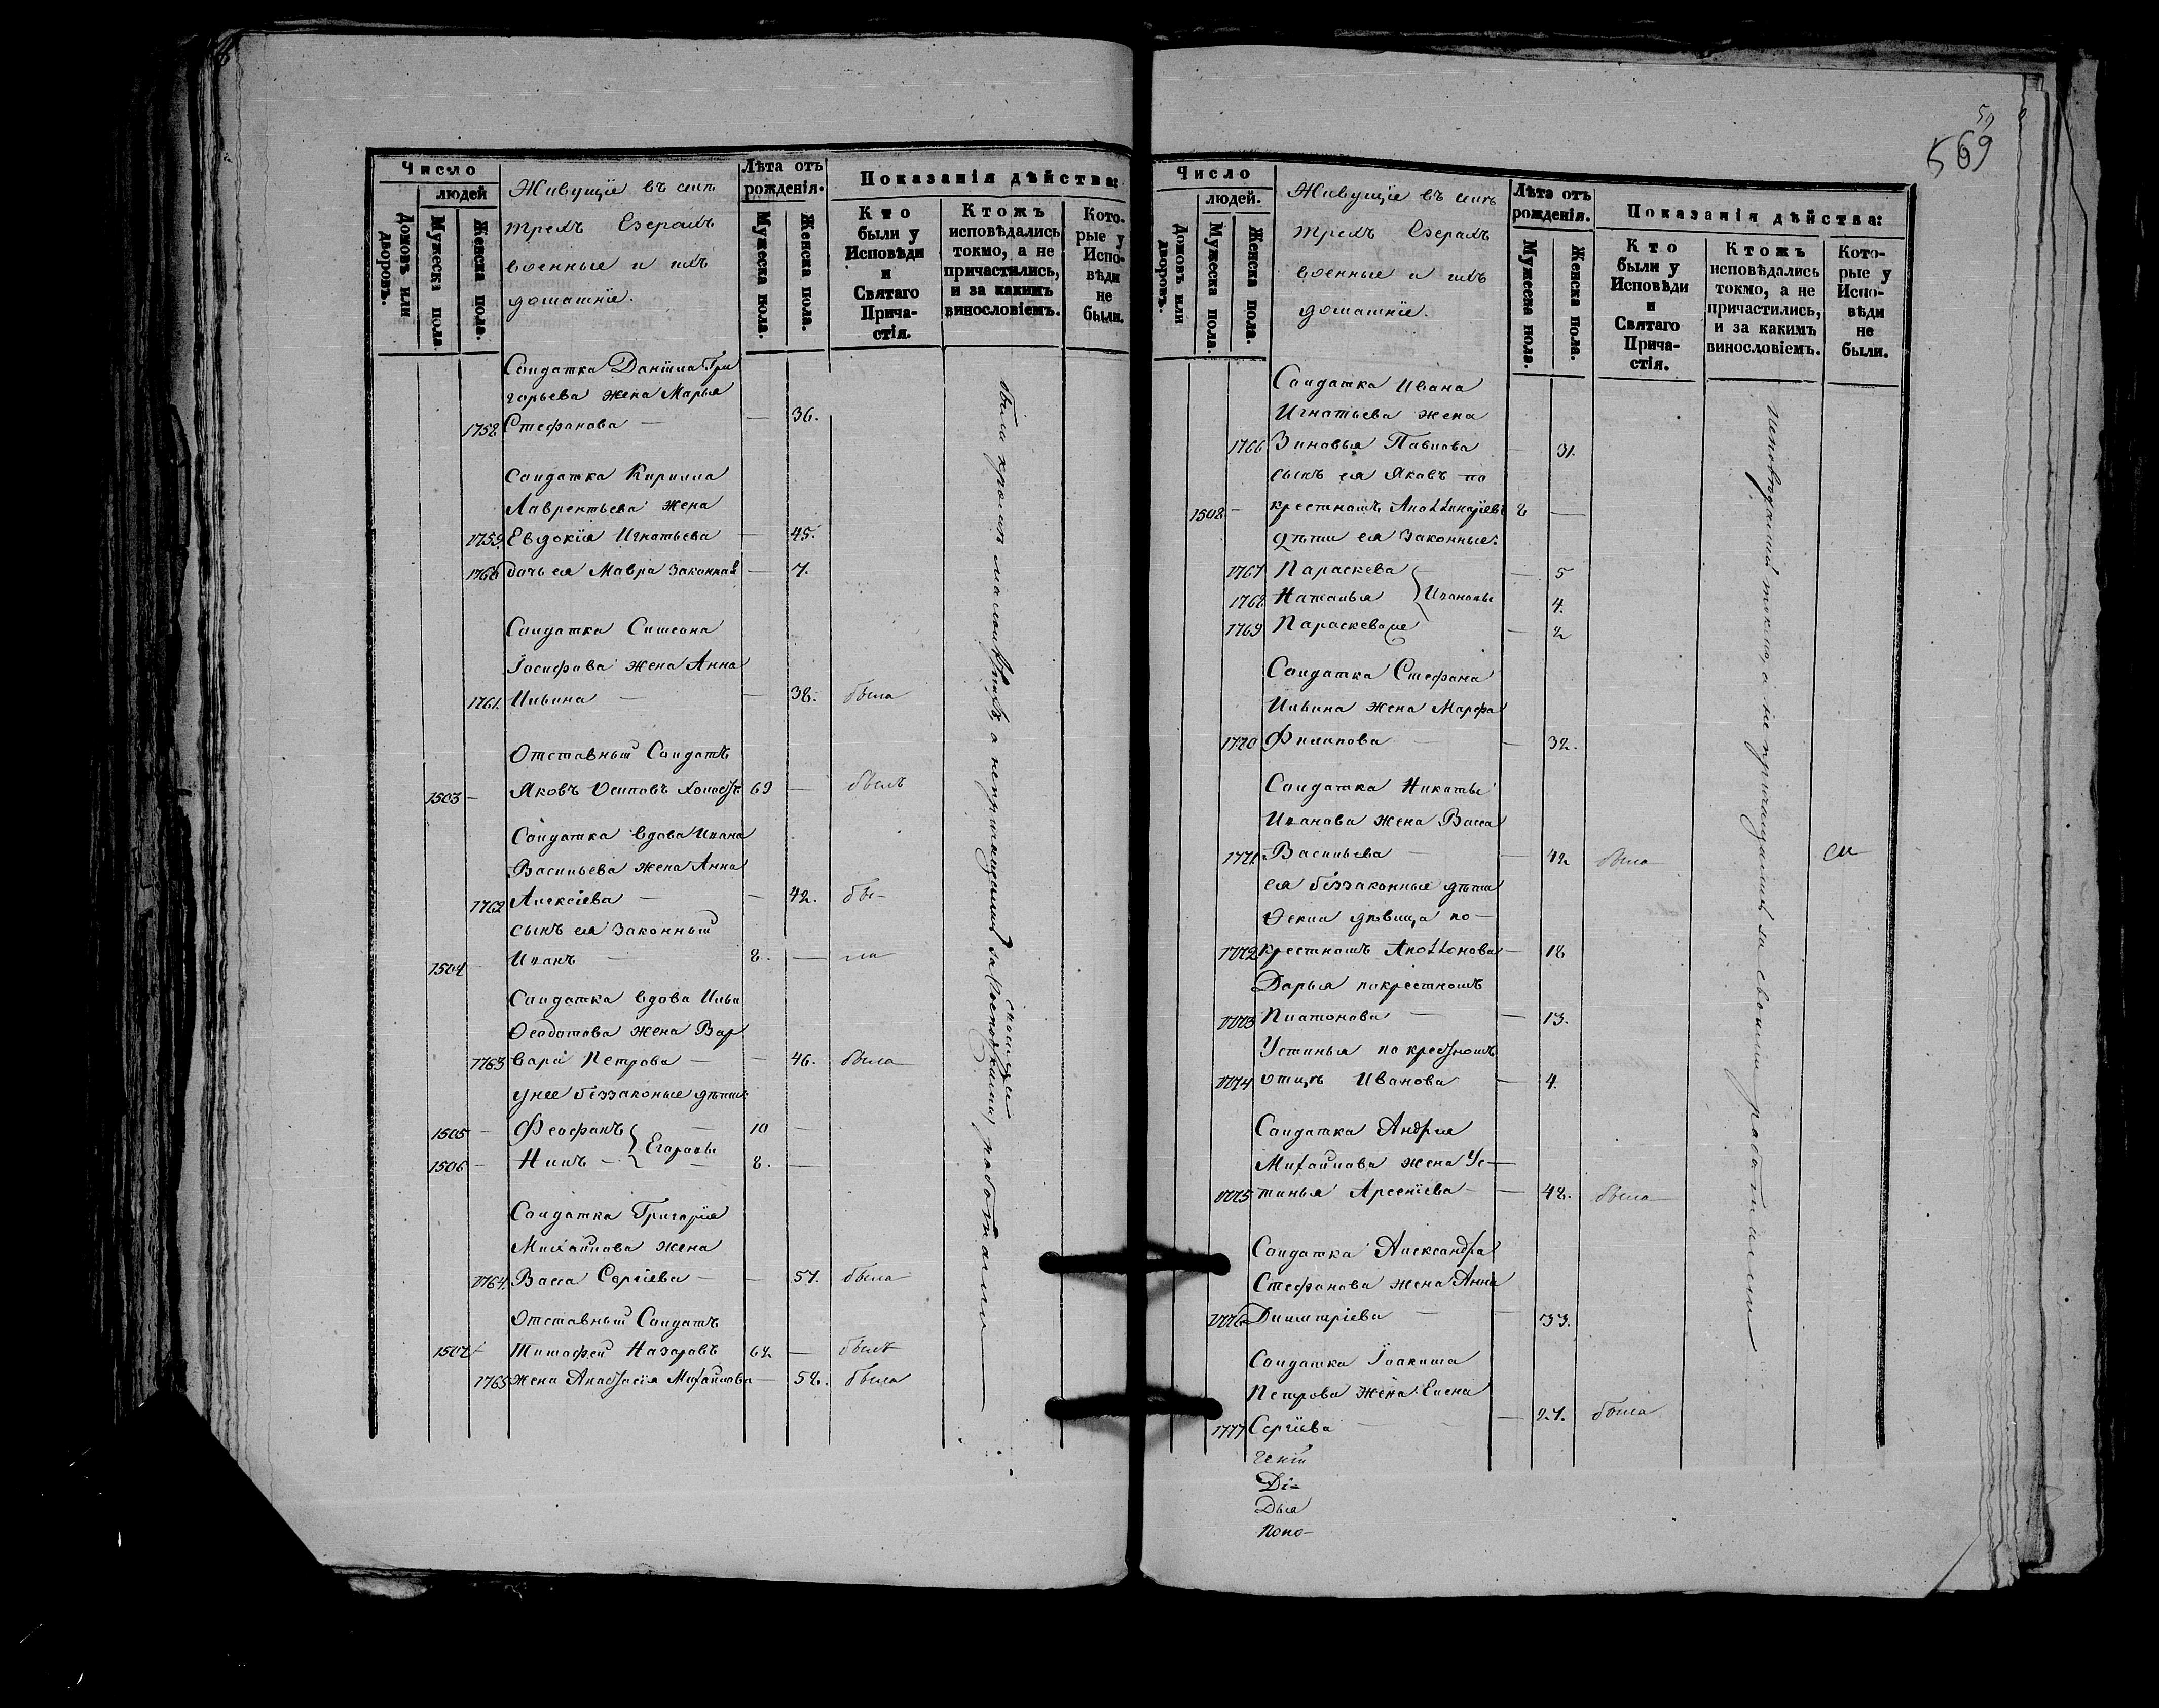 569
Число
людей
Домовъ или дворовъ.
Мужеска пола.
Женска пола.
Живущіе въ селѣ
трехъ Озерахъ
военные и ихъ
домашніе.
Лѣта отъ
рожденія.
Мужеска пола.
Женска пола.
Показанія дѣйства:
Кто
были у
Исповѣди
и
Святаго
Прича-
стія.
Ктожъ
исповѣдались
токмо, а не
причастились,
и за какимъ
винословіемъ.
Кото-
рые у
Испо-
вѣди
не
были.
Солдатка Даніила Гри
горьева жена Марья
1758 Стефанова — — 36.
Солдатка Кирилла
Лаврентьева жена
1759. Евдокія Игнатьева — 45.
1760 дочь ея Мавра законная — 7.
Солдатка Симеона
Іосифова жена Анна
1761. Ильина — — 38. была
Отставный Солдатъ
1503 — Яковъ Осиповъ 69 — былъ
Солдатка вдова Ивана
Васильева жена Анна
1762 Алексіева — — 42. бы-
сынъ ея законный
1504 — Иванъ — 8. — ли
Солдатка вдова Ильи
Феодотова жена Вар
1763 вара Петрова — — 46. была
у нее беззаконые дѣти:
1505 — Феофанъ — 10 —
Егоровы
1506 — Нилъ — 8. —
Солдатка Григорія
Михайлова жена
1764. Васса Сергіева — — 57. была
Отставный Солдатъ
1507 Тимофей Назаровъ 62 — былъ
1765 жена Анастасія Михайлова — 58. была
а непричащались
работами
Число
людей.
Домовъ или дворовъ.
Мужеска пола.
Женска пола.
Живущіе въ селѣ
трехъ Озерахъ
военные и ихъ
домашніе.
Лѣта отъ
рожденія.
Мужеска пола.
Женска пола.
Показанія дѣйства:
Кто
были у
Исповѣди
и
Святаго
Прича-
стія.
Ктожъ
исповѣдались
токмо, а не
причастились,
и за какимъ
винословіемъ.
Кото-
рые у
Испо-
вѣди
не
были.
Солдатка Ивана
Игнатьева жена
1766 Зиновья Павлова — 31.
сынъ ея Яковъ по
1508 — крестномъ Аполлинаріевъ 8 —
дѣти ея законные:
1767 Параскева — 5
1768 Наталья Ивановы 4.
1769 Параскева же — 2
Солдатка Стефана
Ильина жена Марфа
1770 Филипова — — 32.
Солдатка Никиты
Иванова жена Васса
1771. Васильева — — 42 была
ея беззаконные дѣти
Фекла дѣвица по-
1772 крестномъ Аполлонова — 18
Дарья покрестномъ
1773 Платонова — — 13.
Устинья по крестномъ
1774 отцѣ Иванова — 4.
Солдатка Андрея
Михайлова жена Ус-
1775 тинья Арсеніева — — 48. была
Солдатка Александра
Стефанова жена Анна
1776 Димитріева — — 33.
Солдатка Іоакима
Петрова жена Елена
1777 Сергіева — — 27. была
исповѣдались токмо, а не причащались за своими работами
Ді-
Дья
Поно-